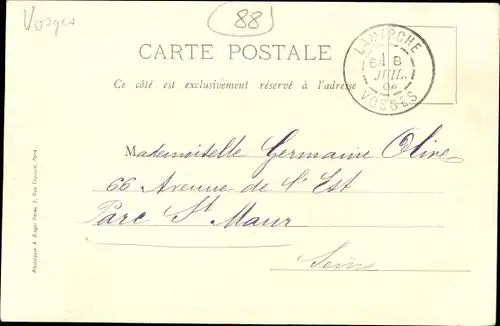 Vosges
88
CARTE POSTALE
Ce côté est exclusivement réservé à l'adresse
LAMARCHE
8
JUIL.
VOSGES
Mademoiselle Germaine Olive
66 Avenue de l'Est
Parc St Maur
Seine